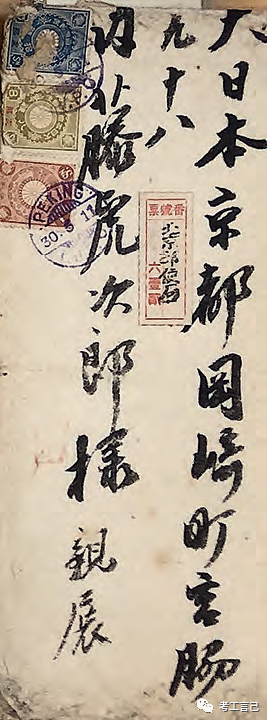 大日本京都岡崎町宮脇
九十八
内藤虎次郎様 親展
番號票
北京郵便局
六壹貳
PEKING
30.8.11
考工言己